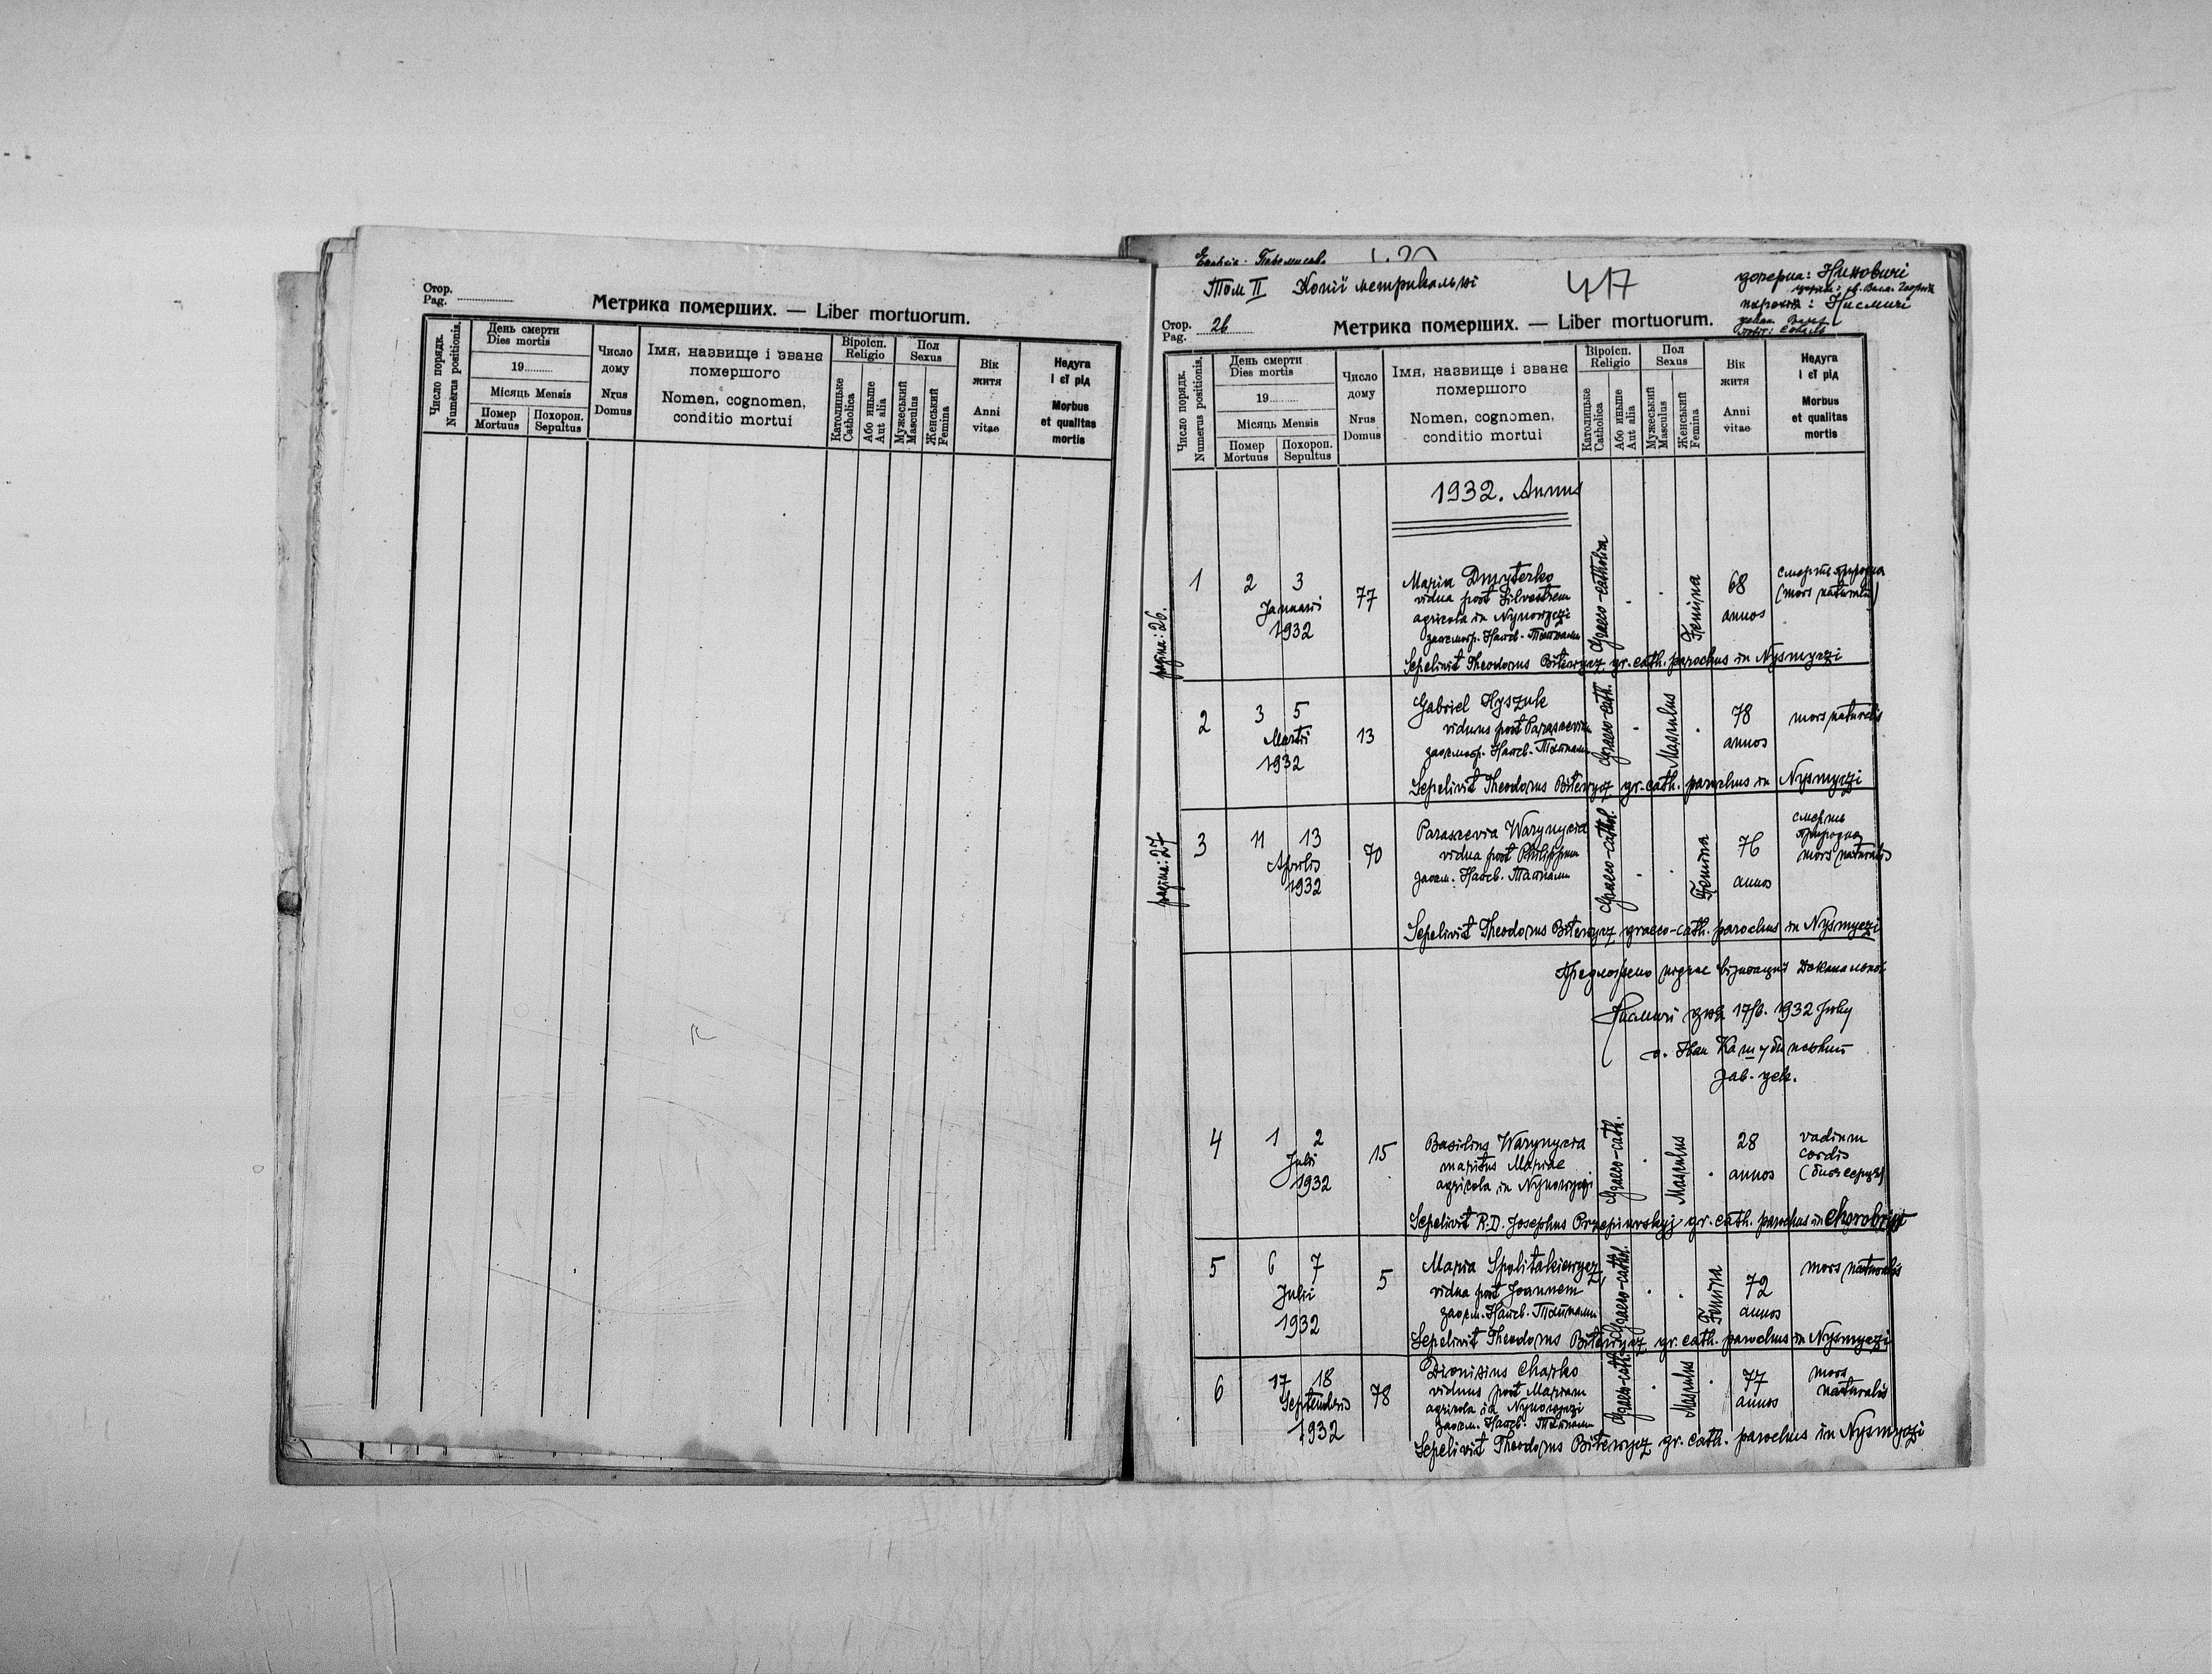 Стор.
Pag.
Метрика померших. — Liber mortuorum.
Число порядк.
Numerus positionis.
День смерти
Dies mortis
19
Місяць Mensis
Помер
Mortuus
Похорон.
Sepultus
Число
дому
Nrus
Domus
Імя, назвище і зване
помершого
Nomen, cognomen,
conditio mortui
Віроісп.
Religio
Католицьке
Catholica
Або иньше
Aut alia
Пол
Sexus
Мужеський
Masculus
Женський
Femina
Вік
житя
Anni
vitae
Недуга
і єї рід
Morbus
et qualitas
mortis
Том II Копії метрикальні
417
дочерна: Ниновичі
парохія: Нисмичі
Стор.
Pag. 26
Метрика померших. — Liber mortuorum.
Число порядк.
Numerus positionis.
День смерти
Dies mortis
19
Місяць Mensis
Помер
Mortuus
Похорон.
Sepultus
Число
дому
Nrus
Domus
Імя, назвище і зване
помершого
Nomen, cognomen,
conditio mortui
Віроісп.
Religio
Католицьке
Catholica
Або иньше
Aut alia
Пол
Sexus
Мужеський
Masculus
Женський
Femina
Вік
житя
Anni
vitae
Недуга
і єї рід
Morbus
et qualitas
mortis
1932. Annus
pagina: 26.
1
2 3
Januarii
1932
77
Maria Dmyterko
vidua post Silvestrem
agricola in Nynowyczi
заосмотр. Найсв. Тайнами
Graeco-catholica
Femina
68
annos
смерть природна
(mors naturalis)
Sepelivit Theodorus Bitewycz gr. cath. parochus in Nysmyczi
2
3 5
Martii
1932
13
Gabriel Hyszuk
viduus post Parasceviam
заосмотр. Найсв. Тайнами
Graeco-cath.
Masculus
78
annos
mors naturalis
Sepelivit Theodorus Bitewycz gr.-cath. parochus in Nysmyczi
pagina: 27
3
11 13
Aprilis
1932
70
Parascevia Warynycia
vidua post Philippum
заосм. Найсв. Тайнами
Graeco-cathol.
Femina
76
annos
смерть
природна
mors naturalis
Sepelivit Theodorus Bitewycz graeco-cath. parochus in Nysmyczi
Предложено підчас візитації Деканальної
Нисмичі дня 17/6. 1932 року
о. Іван
зав. дек.
4
1 2
Julii
1932
15
Basilius Warynycia
maritus Mariae
agricola in Nynowyczi
Graeco-cath.
Masculus
28
annos
vadium
cordis
Sepelivit R.D. Josephus Przepiurskyj gr. cath. parochus in Chorobriw
5
6 7
Julii
1932
5
Maria Spolitakiewycz
vidua post Joannem
заосм. Найсв. Тайнами
Graeco-cathol.
Femina
72
annos
mors naturalis
Sepelivit Theodorus Bitewycz gr. cath. parochus in Nysmyczi
6
17 18
Septembris
1932
78
Dionisius Charko
viduus post Mariam
agricola in Nynowyczi
заосм. Найсв. Тайнами
Graeco-cath.
Masculus
77
annos
mors
naturalis
Sepelivit Theodorus Bitewycz gr. cath. parochus in Nysmyczi